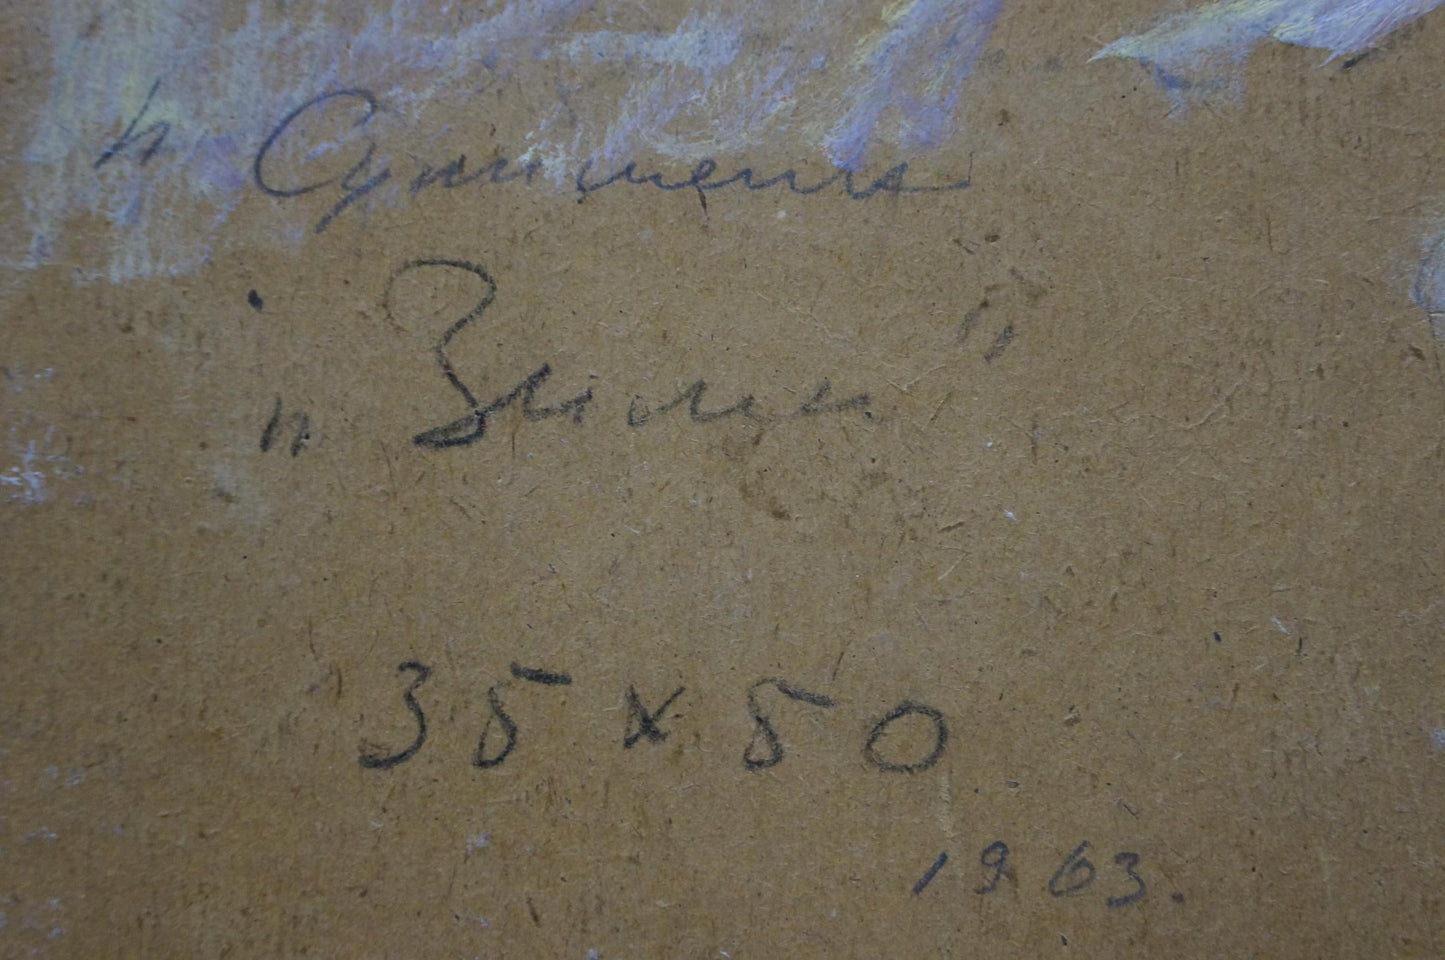 "Зима"
35 х 50
1963.